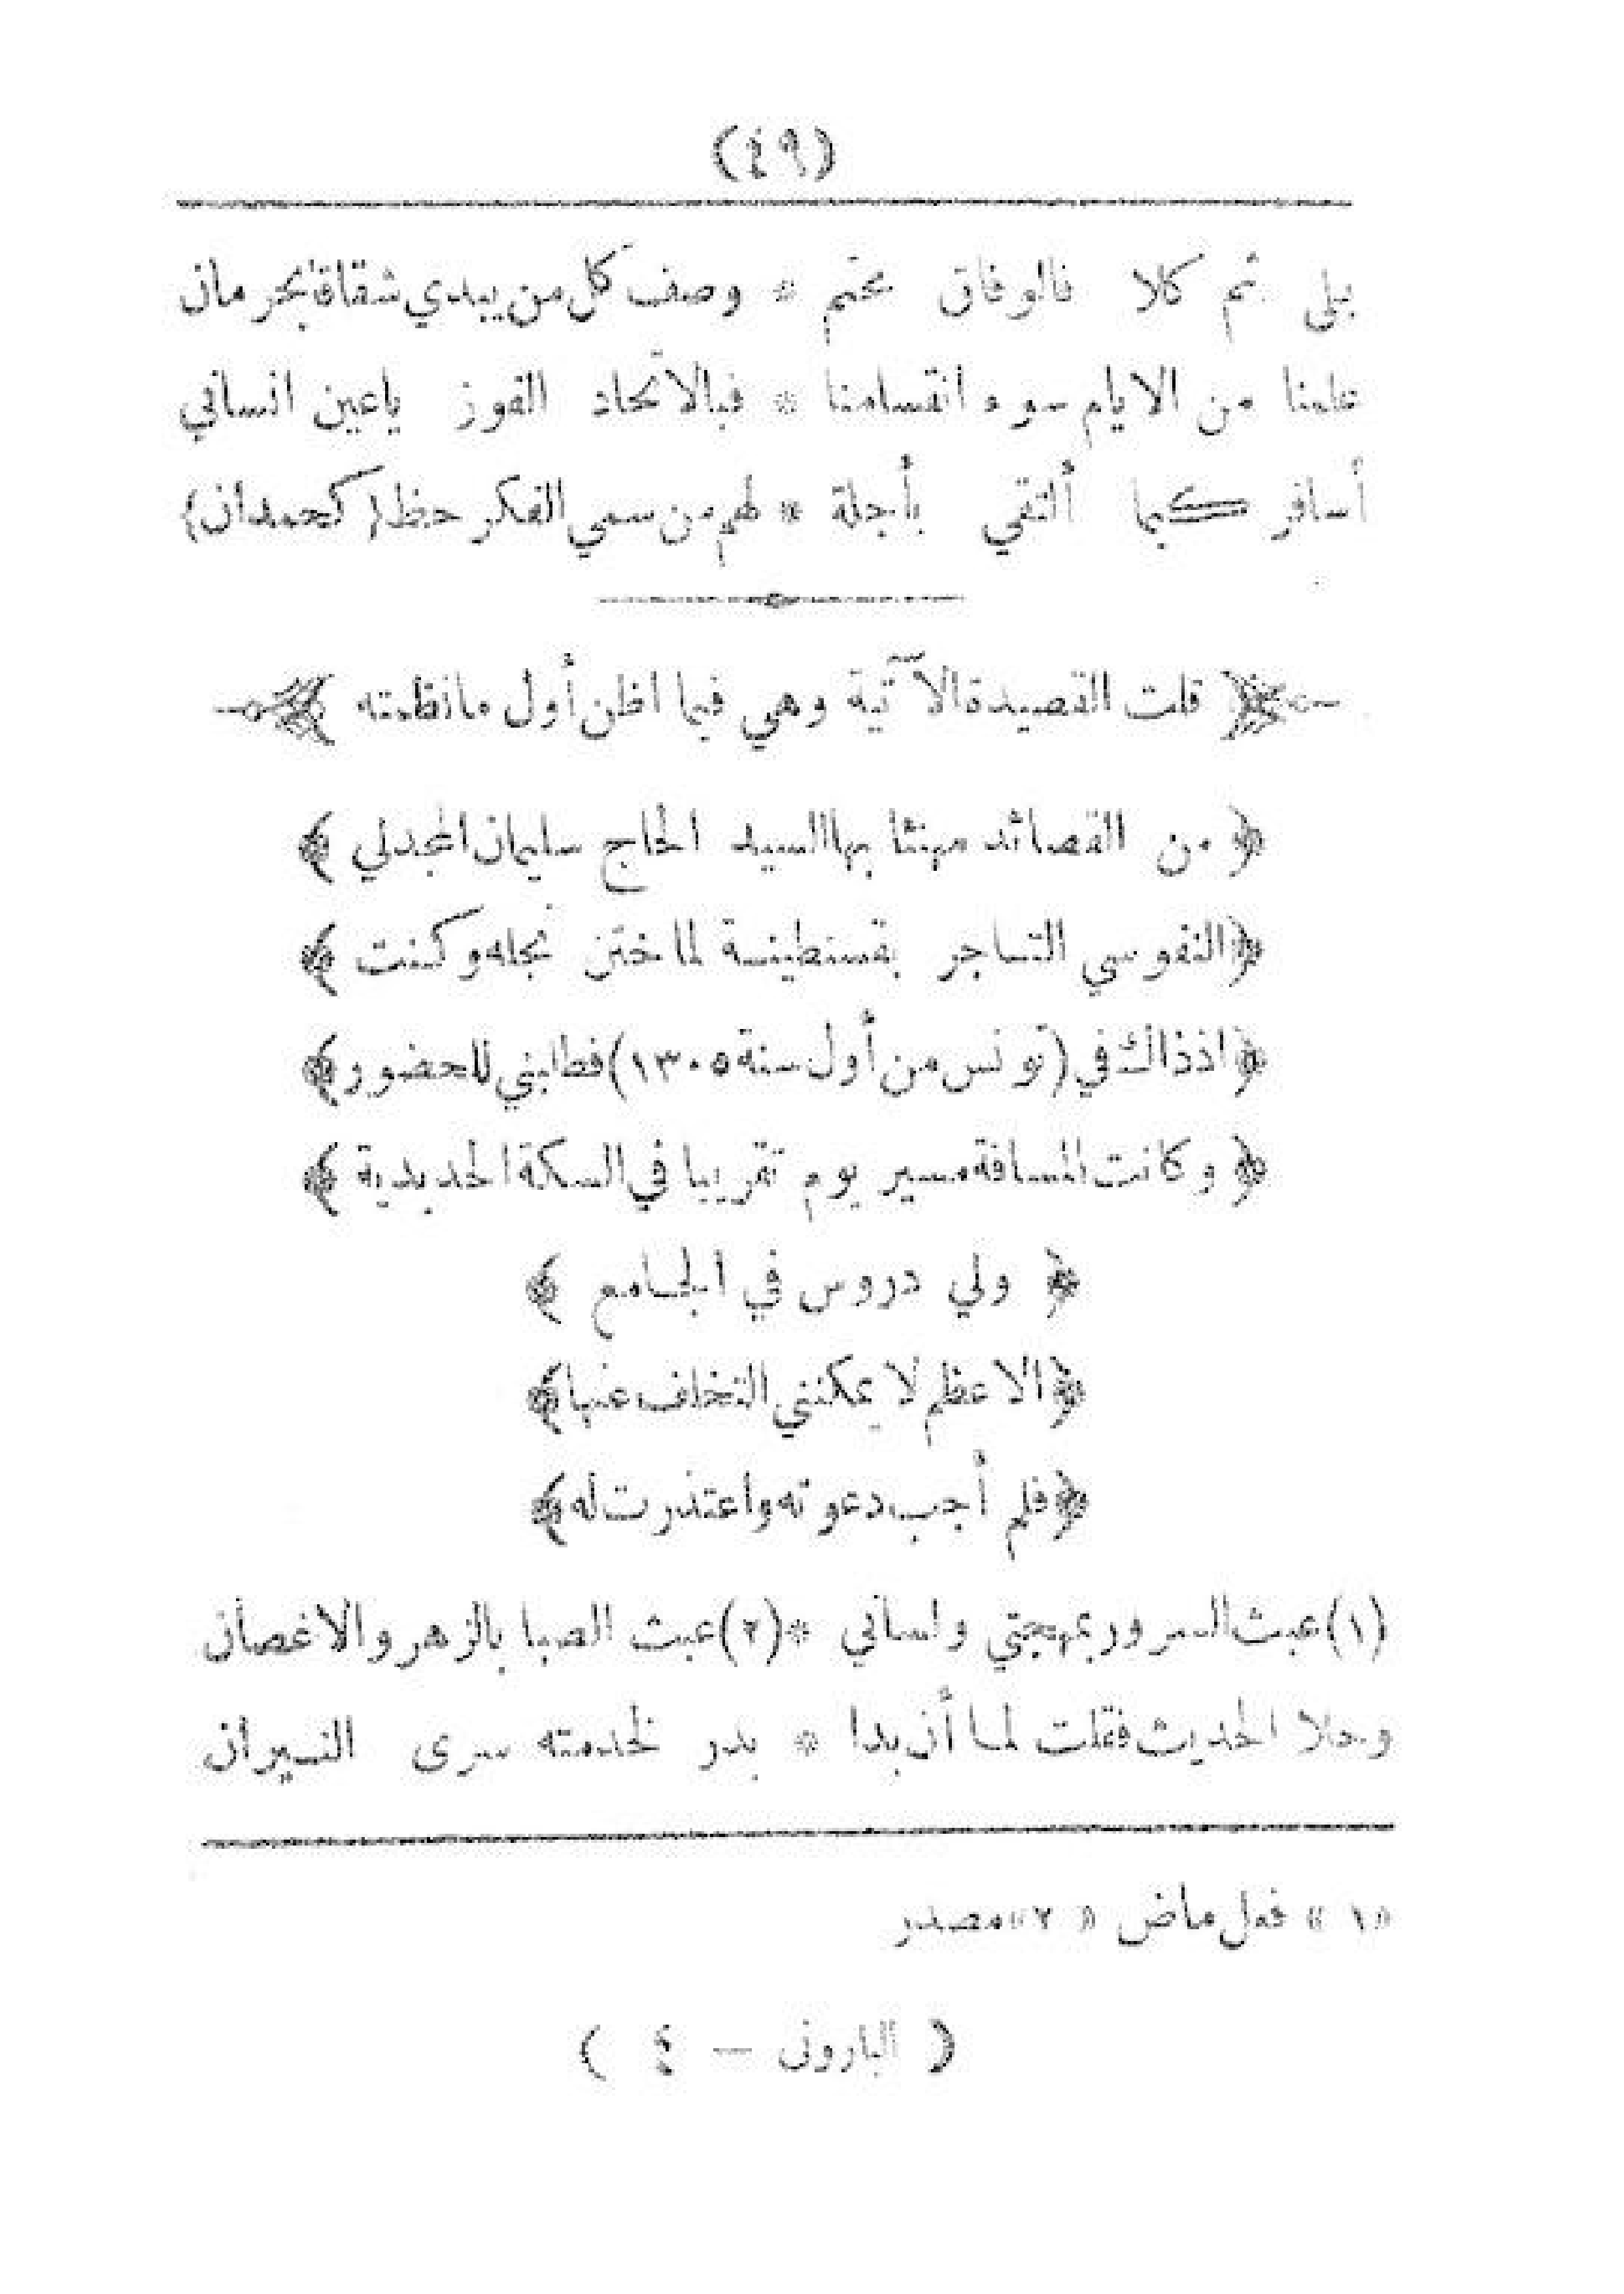 (٤٩)
بلى ثم كلا فالوفاق محتم * وصف كل من يبدي شقاقا بحرمان
علمنا من الايام سوء انقسامنا * فبالاتّحاد الفوز ياعين انساني
أسافر كيما ألتقي بأجلة * لهم من سمي الفكر حظ (كحمدان)
﴿ قلت القصيدة الآتية وهي فيما اظن أول ما نظمته ﴾
﴿ من القصائد مهنئا بها السيد الحاج سليمان المجدلي ﴾
﴿ النفوسي التاجر بقسنطينة لما ختن نجله وكنت ﴾
﴿ اذ ذاك في (تونس من أول سنة ١٣٠٥) فطلبني للحضور ﴾
﴿ وكانت المسافة مسير يوم تقريبا في السكة الحديدية ﴾
﴿ ولي دروس في الجامع ﴾
﴿ الاعظم لا يمكنني التخلف عنها ﴾
﴿ فلم أجب دعوته واعتذرت له ﴾
(١) عبث السرور بمهجتي ولساني * (٢) عبث الصبا بالزهر والاغصان
وحلا الحديث فقلت لما أن بدا * بدر لخدمته سرى النيران
«١» فعل ماض «٢» مصدر
( البارونى — ٤ )